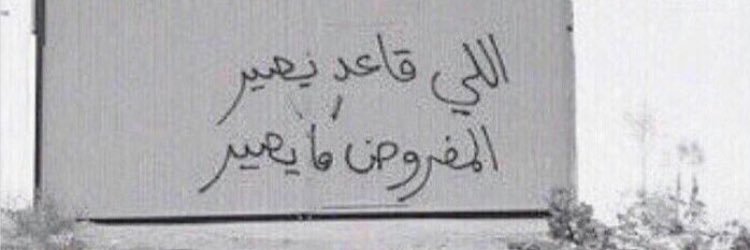 اللي قاعد يصير
المفروض ما يصير